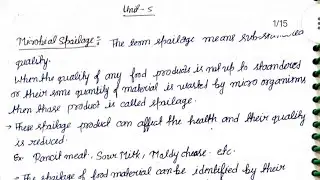 Unit-5
1/15
Microbial Spailage:- The term spailage means substandard
quality.
When the quality of any food products is not up to standereds
or their some quantity of material is wasted by micro organisms
then those product is called spailage.
→ These spoilage product can affect the health and their quality
is reduced.
Ex- Rancit meat. Sour Milk, Maldy chease. etc.
→ The spailage of food material can be identified by their